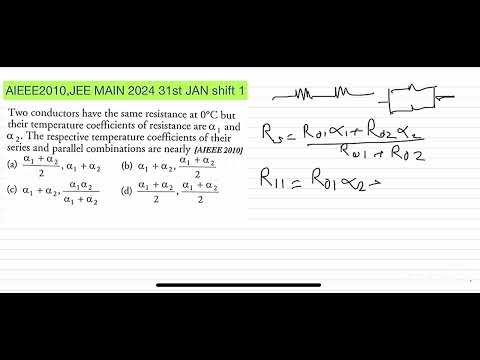 AIEEE2010,JEE MAIN 2024 31st JAN shift 1
Two conductors have the same resistance at 0°C but
their temperature coefficients of resistance are α₁ and
α₂. The respective temperature coefficients of their
series and parallel combinations are nearly [AIEEE 2010]
(a) (α₁ + α₂)/2, α₁ + α₂ (b) α₁ + α₂, (α₁ + α₂)/2
(c) α₁ + α₂, (α₁α₂)/(α₁ + α₂) (d) (α₁ + α₂)/2, (α₁ + α₂)/2
Rs = (R01α1 + R02α2)/(R01 + R02)
R11 = R01α2 +